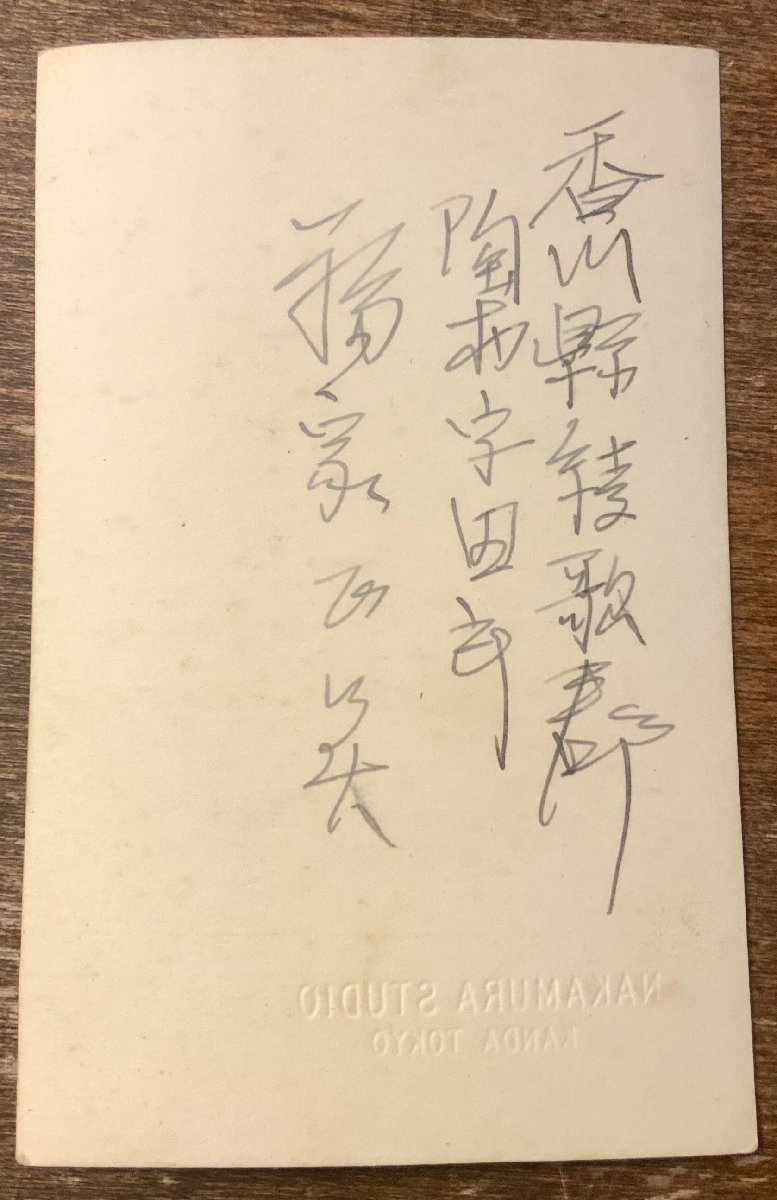 香川縣綾歌郡
陶村字田
福家 美
NAKAMURA STUDIO
KANDA TOKYO